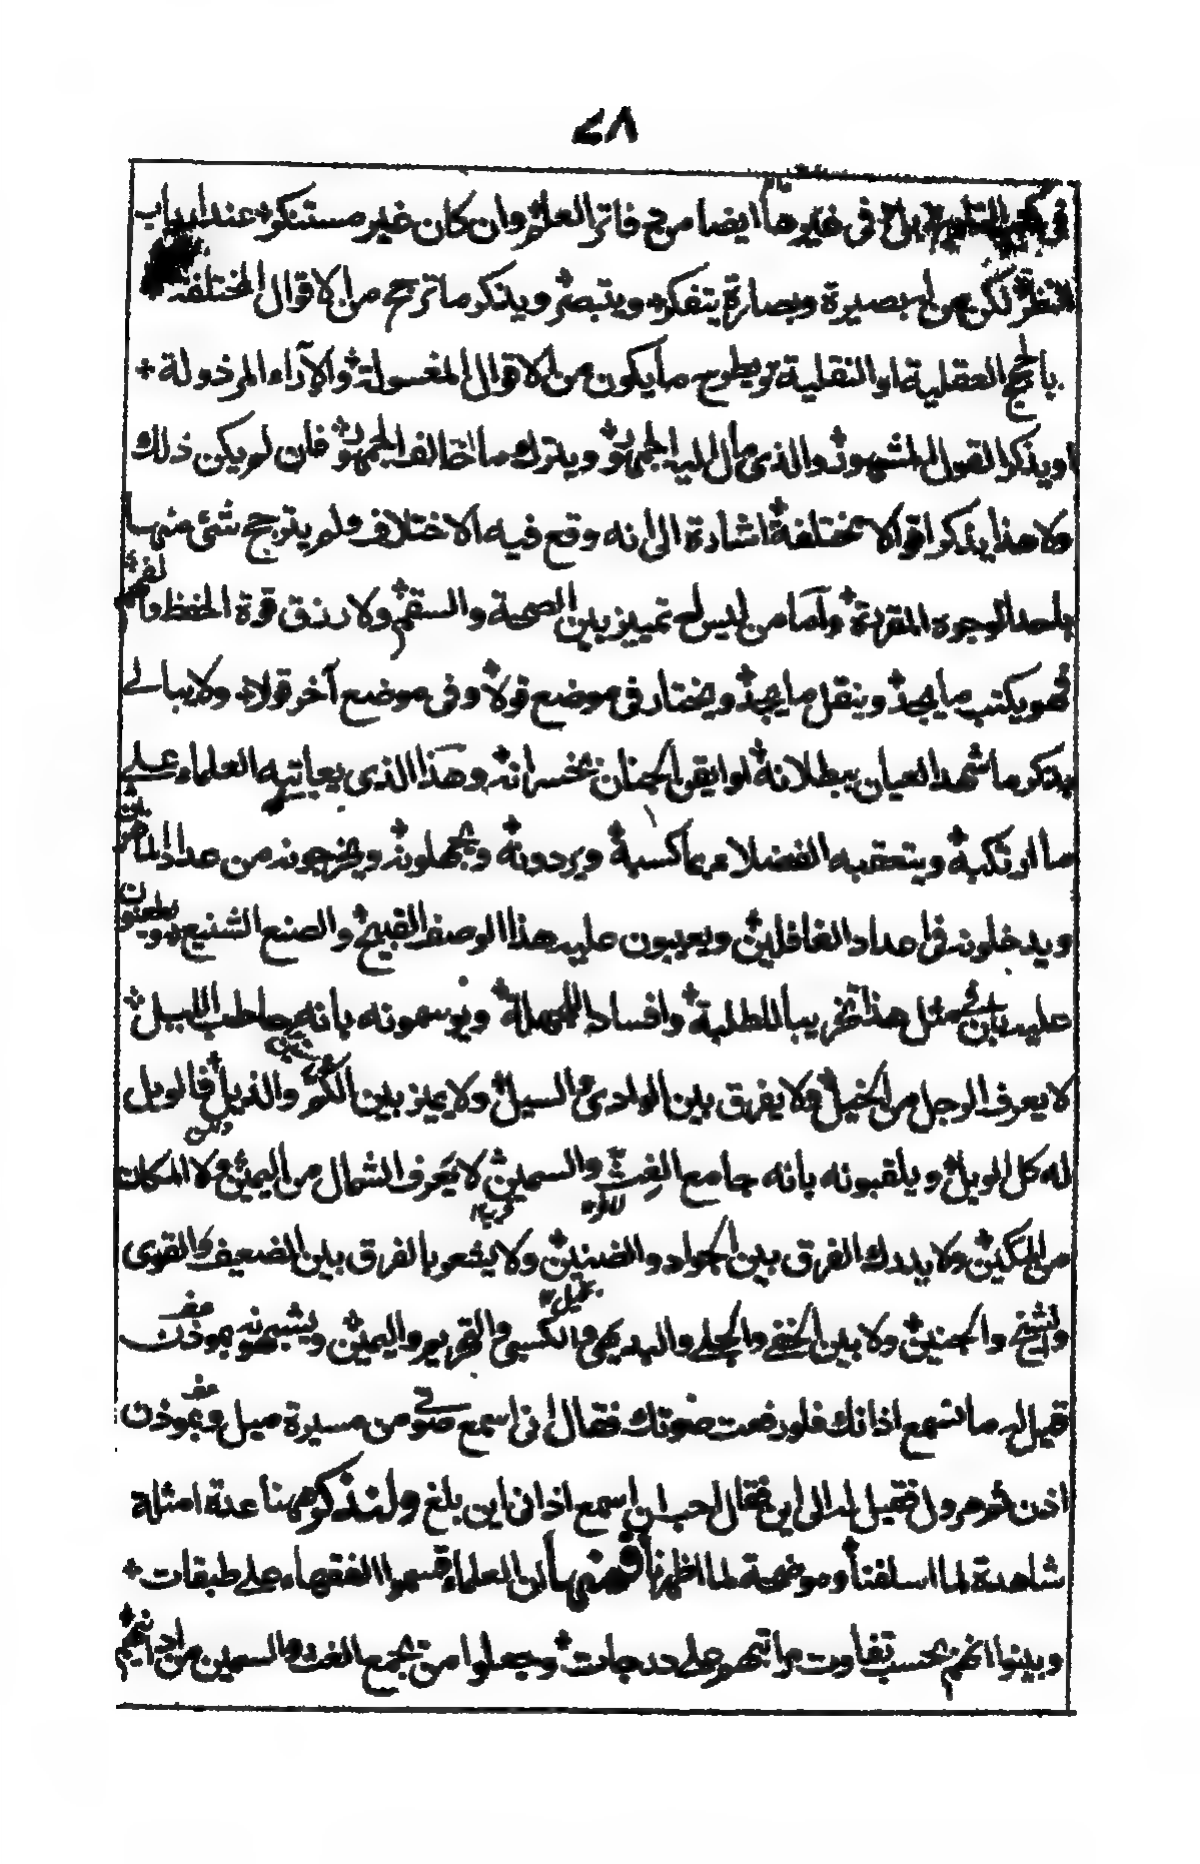 ٤٨
في كتب بل في غيرها ايضا من دفاتر العلم وان كان غير مستنكر عند ارباب
النظر لكن من له بصيرة وبصارة يتفكر ويتبصر ويذكر ما ترجح من الاقوال المختلفة
بالحجج العقلية او النقلية ويطرح ما يكون من الاقوال المغسولة والآراء المرذولة
او يذكر القول المشهور والذي مال اليه الجمهور ويترك ما خالف الجمهور فان لم يكن ذلك
ولا هذا يذكر اقوالا مختلفة اشارة الى انه وقع فيه الاختلاف ولم يترجح شئ منها
باحد الوجوه المقررة واما من ليس له تميز بين الصحة والسقم ولا رزق قوة الحفظ والفهم
فهو يكتب ما يجد وينقل ما يجد ويختار في موضع قولا وفي موضع آخر قولا ولا يبالي
بذكر ما شهد العيان ببطلانه او ايقن الجنان بخسرانه وهذا الذي يعاتبه العلماء على
ما ارتكبه ويتعقبه الفضلاء بما كسبه ويردونه ويجهلونه ويخرجونه من عداد الماهرين
ويدخلونه في اعداد الغافلين ويعيبون عليه هذا الوصف القبيح والصنع الشنيع ويطعنون
عليه بان في مثل هذا تخريبا للطلبة وافسادا للمهملة ويوسمونه بانه حاطب الليل
لا يعرف الرجل من الخيل ولا يفرق بين الوادي والسيل ولا يميز بين الكم والذيل فالويل
له كل الويل ويلقبونه بانه جامع الغث والسمين لا يعرف الشمال من اليمين ولا المكان
من المكين ولا يدرك الفرق بين الجواد والضنين ولا يشعر بالفرق بين الضعيف والقوى
والشيخ والجنين ولا بين الخفي والجلي والبديهي والكسبي واليمين ويشبهونه بموذن
قيل له ما نسمع اذانك فلو رفعت صوتك فقال اني اسمع صوتي من مسيرة ميل وبموذن
اذن ثم هرول فقيل له الى اين فقال احب ان اسمع اذاني اين بلغ ولنذكر ههنا عدة امثلة
شاهدة لما اسلفنا وموضحة لما اظهرنا فمنها ان العلماء قسموا الفقهاء على طبقات
وبينوا انهم بحسب تفاوت مراتبهم على درجات وجعلوا من يجمع الغث والسمين من ادناهم